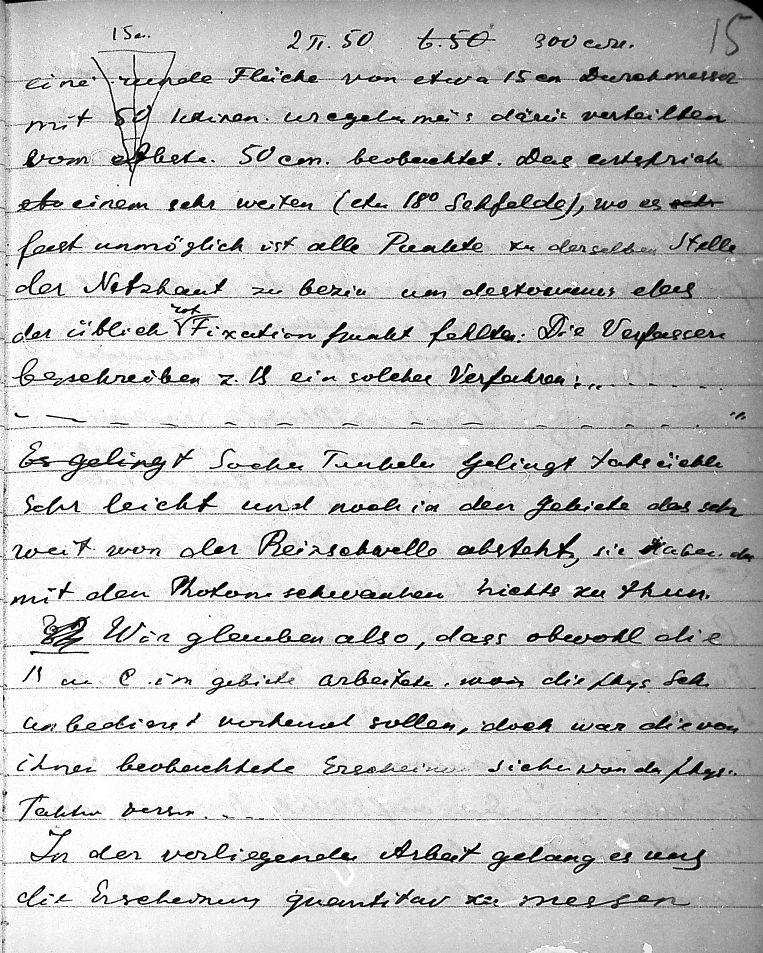 15 cm. 2π.50 6.50 300 cm. 15
eine runde Fläche von etwa 15 cm Durchmesser
mit 50 verteilten
vom 50 cm. beobachtet. Das entsprich
einem sehr weiten (etw 18° Sehfelde), wo es sehr
fast unmöglich ist alle Punkte zu derselben Stelle
der Netzhaut zu um
der üblich rot Fixationspunkt fehlte. Die Verfassern
beschreiben z. B ein solches Verfahren: „
"
Es gelingt Sache gelingt
sehr leicht und noch in den Gebiete das sehr
weit von der Reizschwelle absteht, sie haben da
mit den Photonenschwanken nichts zu thun.
Wir glauben also, dass obwohl die
B u C. im gebiete arbeiteten. wo die phys. Sch.
unbedingt sollen, doch war die von
ihnen beobachtete Erscheinun sicher von der phys.

In der vorliegenden Arbeit gelang es uns
die Erscheinung quantitav zu messen